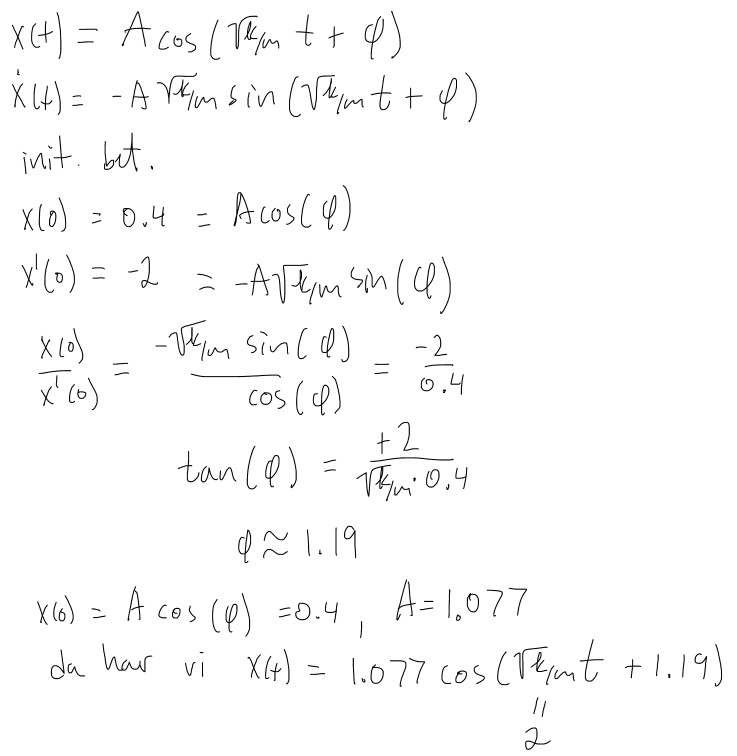 x(t) = A cos(√k/m t + φ)
ẋ(t) = -A √k/m sin(√k/m t + φ)
init. bet.
x(0) = 0.4 = A cos(φ)
x'(0) = -2 = -A√k/m sin(φ)
x(0)/x'(0) = -√k/m sin(φ)/cos(φ) = -2/0.4
tan(φ) = +2/√k/m · 0.4
φ ≈ 1.19
x(0) = A cos(φ) = 0.4, A = 1.077
da har vi x(t) = 1.077 cos(√k/m t + 1.19)
=
2